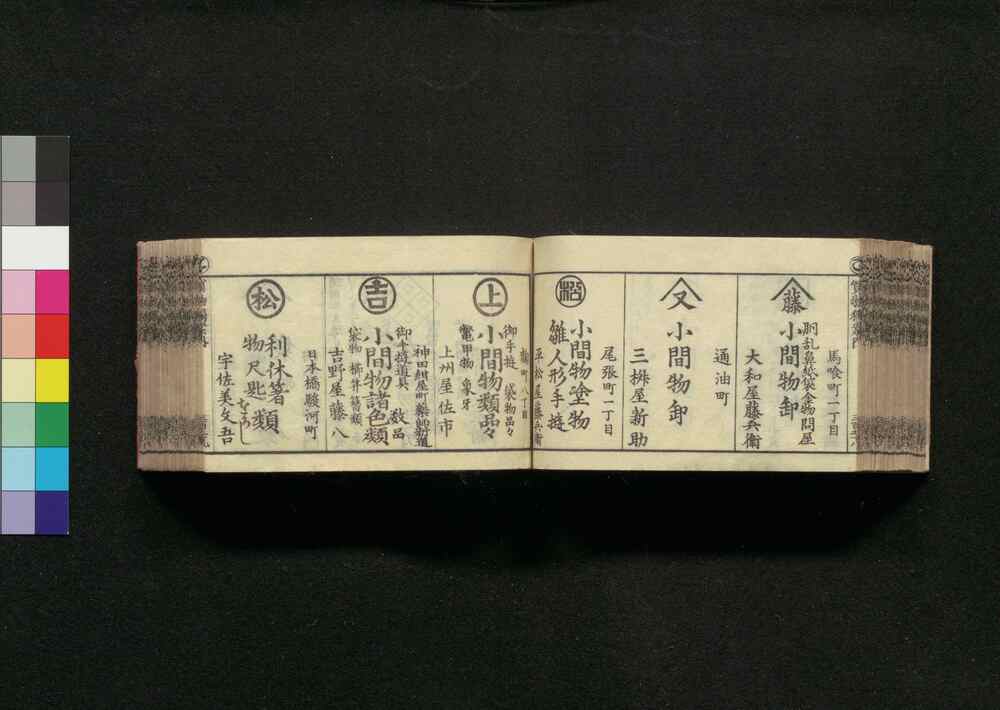 馬喰町一丁目
胴乱鼻紙袋金物問屋
藤
小間物卸
大和屋藤兵衛
通油町
又
小間物卸
三桝屋新助
尾張町一丁目
松
小間物塗物
雛人形手遊
平松屋藤兵衛
町八丁目
御手遊 袋物品々
上
小間物類品々
鼈甲物 象牙
上州屋佐市
神田紺屋町薬師新道
御手遊道具 数品
吉
小間物諸色類
袋物 櫛笄簪類
吉野屋藤八
日本橋駿河町
松
利休箸
物尺匙 類
宇佐美文吾